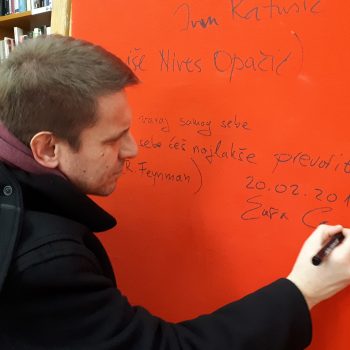 Ivan Katušić
iše Nives Opačić)
varaj samog sebe
sebe ćeš najlakše prevarit
R. Feynman)
20.02.201
Saša